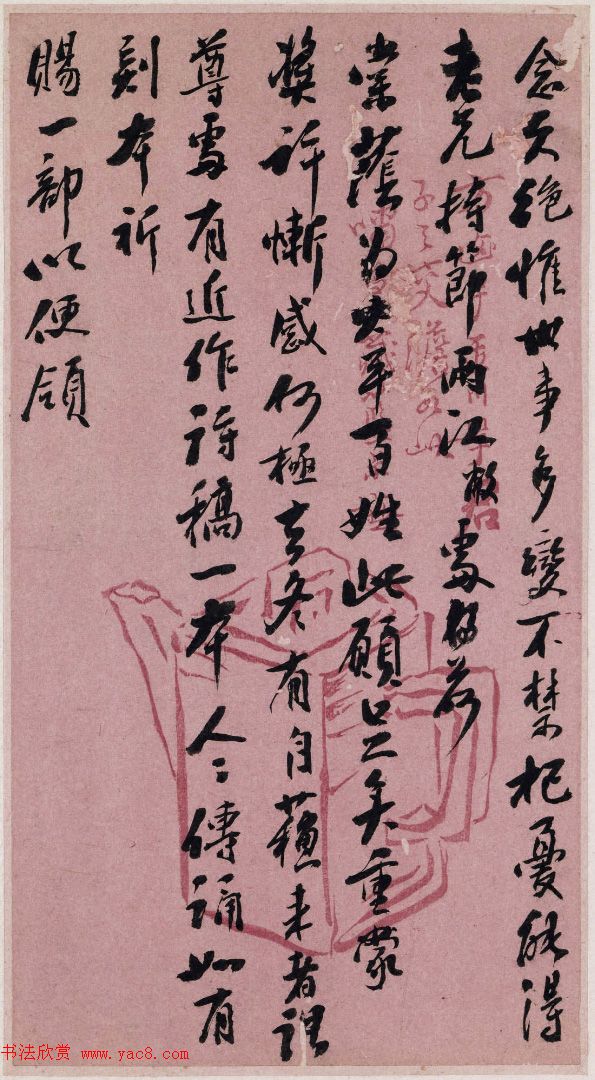 念久絶惟世事多變不禁杞憂能得
老兄持節兩江敝處伏前
棠蔭為史年百姓此願足矣重蒙
獎許慚感何極去冬有自蘇来者謂
尊處有近作詩稿一本人々傳誦如有
刻本祈
賜一部以便領
书法欣赏 www.yac8.com